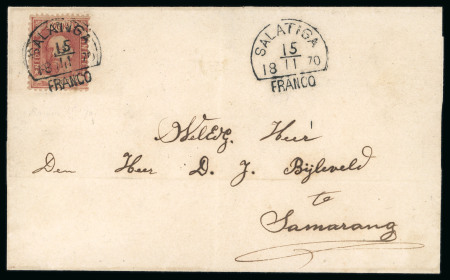 SALATIGA
15
18 11 70
FRANCO
SALATIGA
15
18 11 70
FRANCO
WelEdg. Heer
Den Heer D. J. Bijleveld
te
Samarang